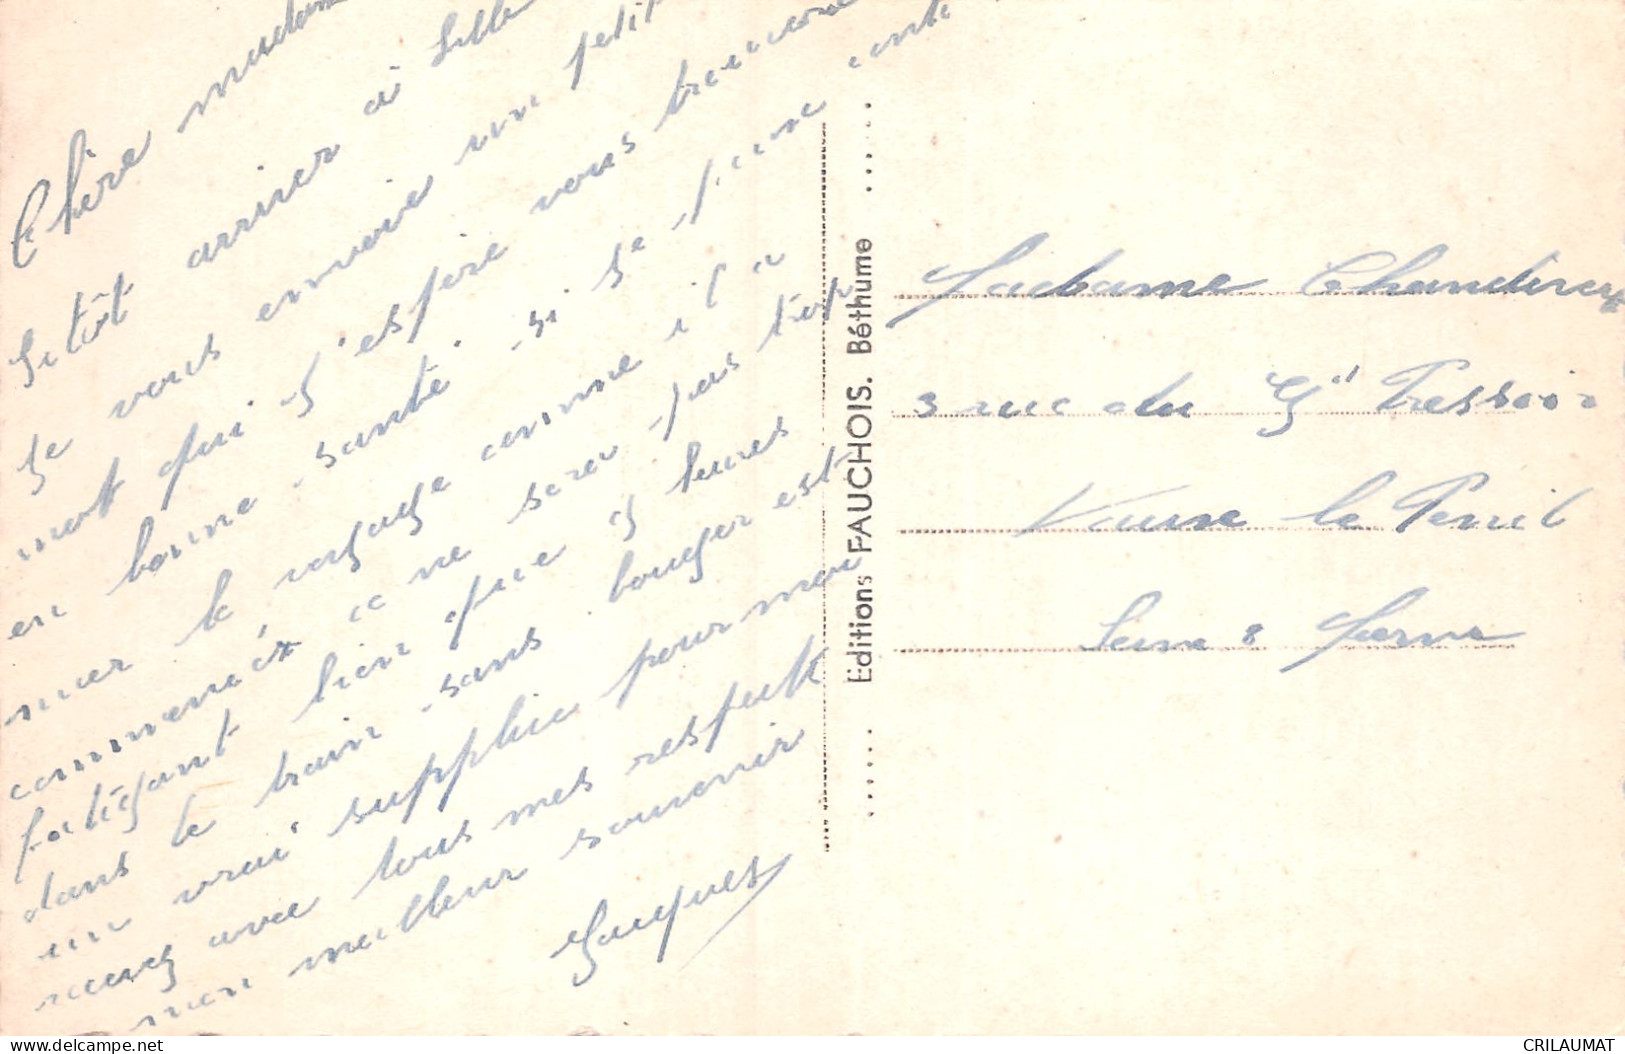 Chère madam
Sitôt arriver à Lille
Je vous envoie un petit
mot qui j'espère vous trouvera
en bonne santé. si Je pense conti
nuer le voyage comme il a
commencér ça ne sera pas trop
fatigant bien que 3 heures
dans le train sans bouger est
un vrai supplice pour moi
recevez avec tous mes respects
mon meilleur souvenir
Jacques
Editions FAUCHOIS. Béthume
Madame
3 rue du Gd Pressoir
Vaux le Penil
Seine & Marne
delcampe.net
CRILAUMAT